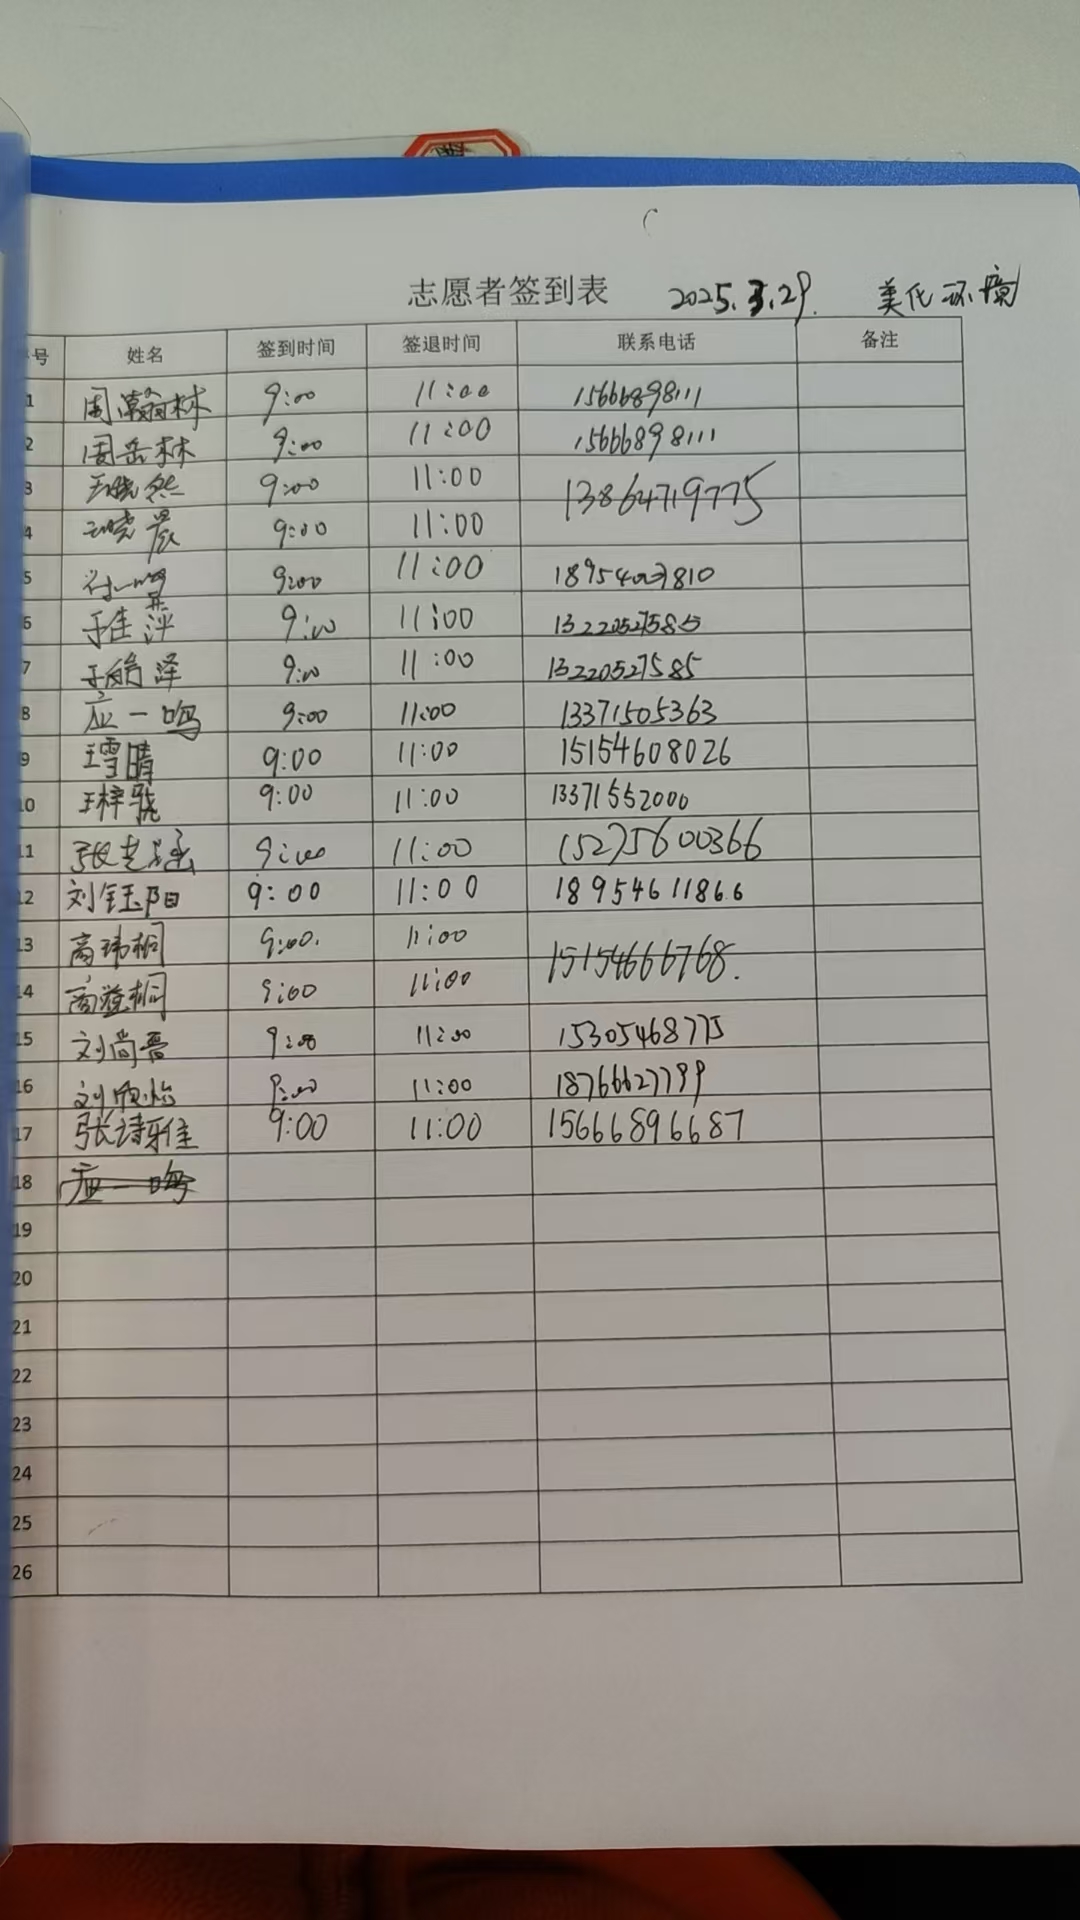 志愿者签到表 2025.3.29. 美化环境
号 姓名 签到时间 签退时间 联系电话 备注
1 周瀚林 9:00 11:00 15666898111
2 周岳林 9:00 11:00 15666898111
3 王晓然 9:00 11:00 13864719775
4 王晓晨 9:00 11:00
5 9:00 11:00
6 于佳萍 9:00 11:00 13220527585
7 于皓泽 9:00 11:00 13220527585
8 应一鸣 9:00 11:00 13371505363
9 王雪晴 9:00 11:00 15154608026
10 王梓骁 9:00 11:00 13371552000
11 9:00 11:00 15275600366
12 刘钰阳 9:00 11:00 18954611866
13 高玮桐 9:00. 11:00 15154666768.
14 9:00 11:00
15 刘尚晋 9:00 11:00 15305468775
16 9:00 11:00 18766627799
17 张诗雅 9:00 11:00 15666896687
18 应一鸣
19
20
21
22
23
24
25
26